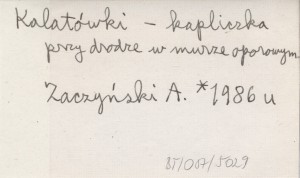 Kalatówki – kapliczka
przy drodze w murze oporowym
Zaczyński A. *1986 u
BT/087/5029